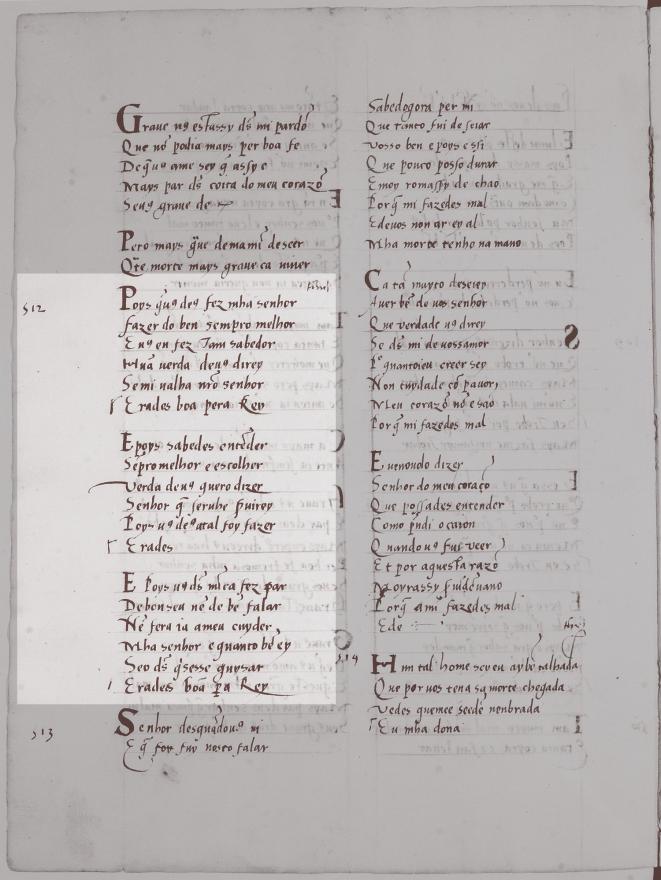 Graue uꝯ estassy ds̄ mi pardō
Que nō podia mays per boa fe
De q̄ uꝯ ame sey q̄ assy e
Mays par ds̄ coita do meu corazō
Senꝯ graue de
Pero mays q̄ue demami descer
Q̄te morte mays graue ca uiuer
512
Poys q̄uꝯ deꝯ fez mha senhor
fazer do ben sempro melhor
E uꝯ en fez tam sabedor
Hūa uerda deuꝯ direy
Semi ualha nr̄o senhor
Erades boa pera Rey
E poys sabedes entēder
Sēpro melhor e escolher
Verda deuꝯ quero dizer
Senhor q̄ seruhe
Poys uꝯ deꝯ atal foy fazer
Erades
E Poys uꝯ ds̄ nūca fez par
De bon sen nē de bē falar
Nē fera ia ameu cuydar
Mha senhor e quanto bē ey
Seo ds̄ q̄sesse guysar
Erades boā pa Rey
513
Senhor desquādouꝯ ui
E q̄ fox fuy uosco falar
Sabedagora per mi
Que tanto fui deseiar
Vosso ben e poys e ssi
Que pouco posso durar
E moyromassy de chao
Porq̄ mi fazedes mal
E de uos non ar ey al
Mha morte tenho na mano
Ca tā muyto deseiey
Auer bē de uos senhor
Que uerdade uꝯ direy
Se ds̄ mi de uossamor
quantoieu creer sey
Non cuydade cō pauor
Meu corazō nō e sāo
Porq̄ mi fazedes mal
E uenouolo dizer
Senhor do meu coraçō
Que possades entender
Como p̄ndi o caion
Quando uꝯ fui ueer
Et por aquesta razō
Moyrassy
Porq̄ a mi fazedes mal
E de
514
Hun tal home sey eu ay bē talhada
Que por uos ten a sa morte chegada
Vedes quem e e seede nenbrada
Eu mha dona